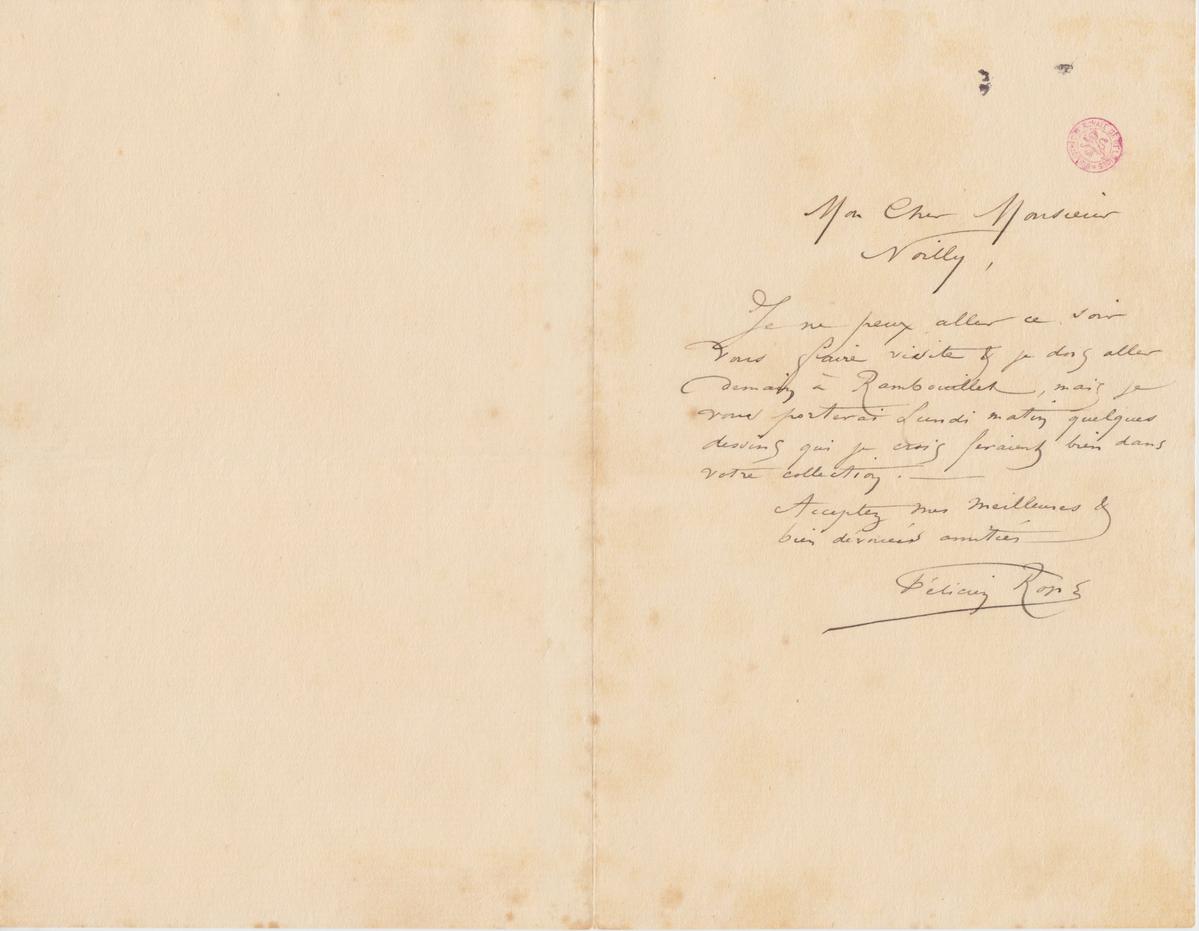 Mon Cher Monsieur
Noilly,
Je ne peux aller ce soir
vous faire visite & je dois aller
demain à Rambouillet, mais je
vous porterai Lundi matin quelques
dessins qui je crois feraient bien dans
votre collection. —
Acceptez mes meilleures &
bien dévouées amitiés
Félicien Rops